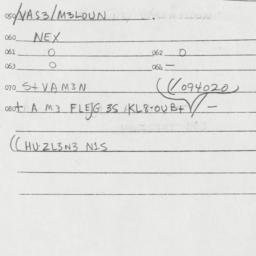 050 VAS3/M3LOUN
060 NEX
061 O 062 O
063 O 064 —
070 S+VAM3N ((/094020
080 + A M3 FLEJG 3S /KL8·OUB+ / —
((HU·ZL3N3 N1S